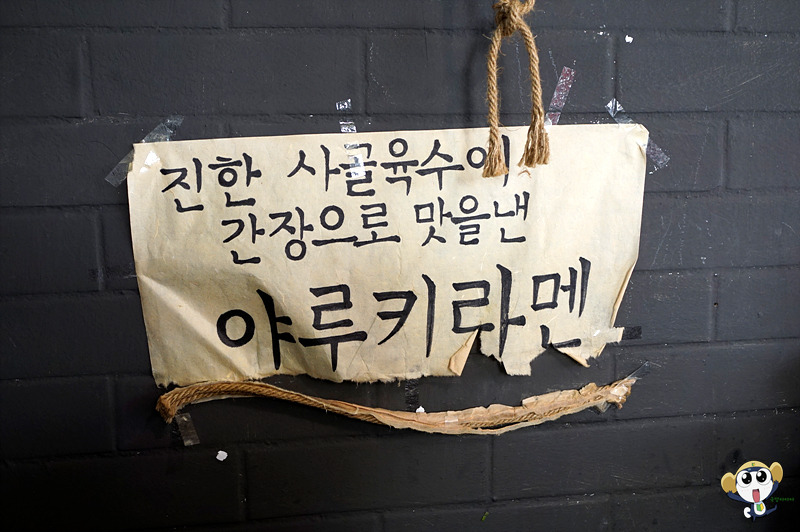 진한 사골육수에
간장으로 맛을낸
야루키라멘